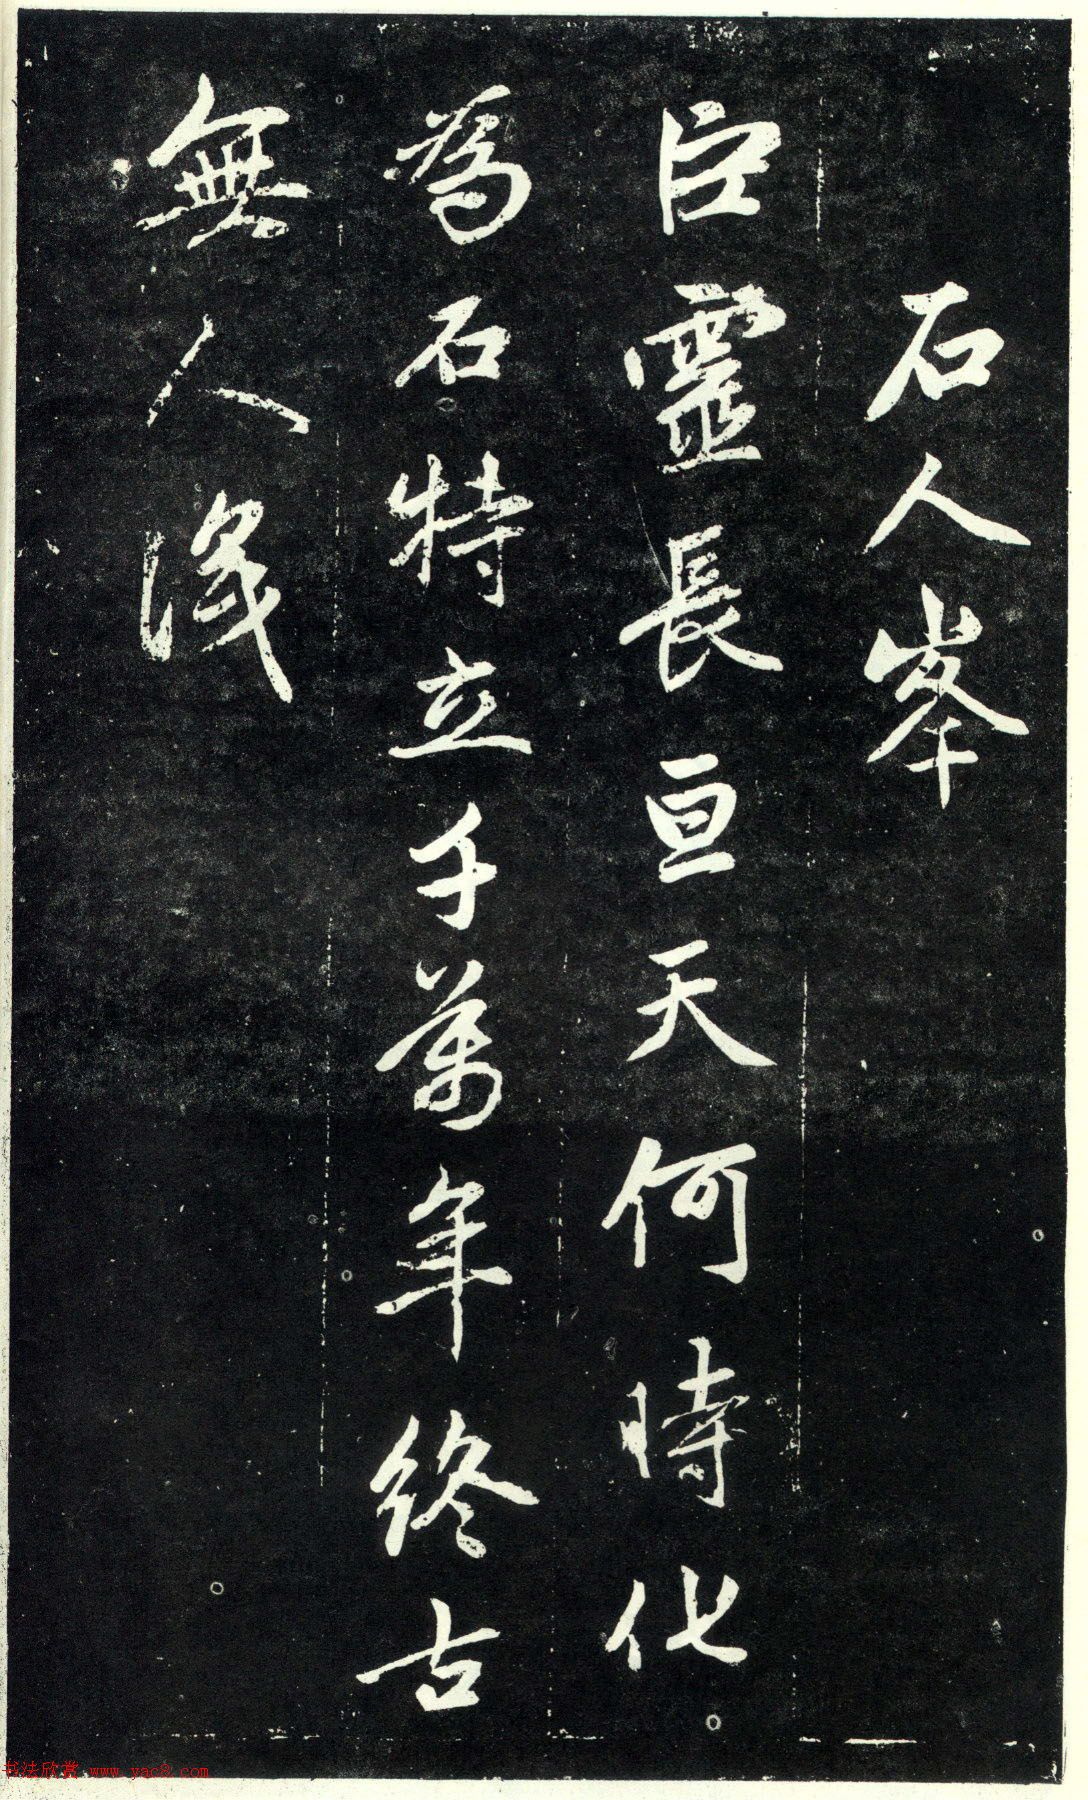 石人峯
巨靈長亘天何時化
為石特立千萬年終古
無人識
书法欣赏 www.yac8.com